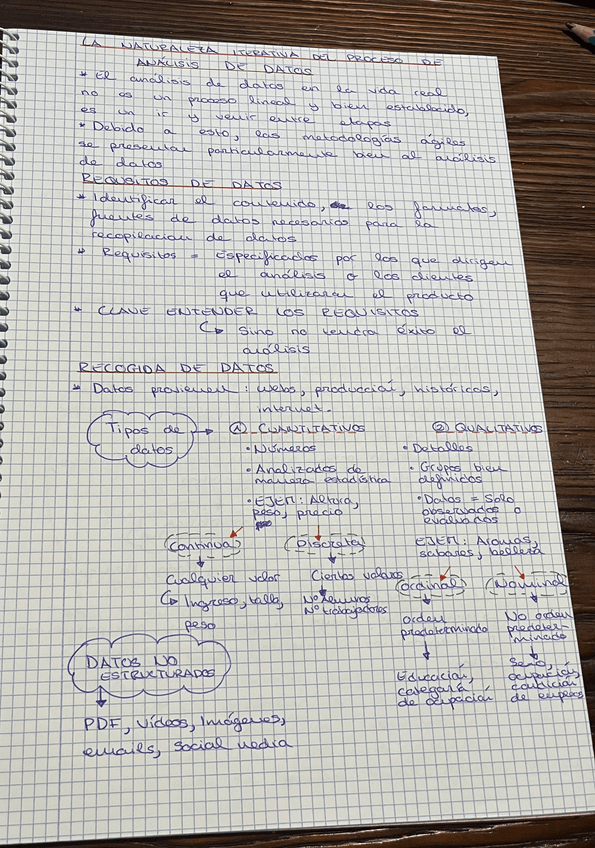 LA NATURALEZA ITERATIVA DEL PROCESO DE
ANÁLISIS DE DATOS
* El análisis de datos en la vida real
no es un proceso lineal y bien establecido,
es un ir y venir entre etapas
* Debido a esto, las metodologías ágiles
se presentan particularmente bien al análisis
de datos
REQUISITOS DE DATOS
* Identificar el contenido, los formatos,
fuentes de datos necesarios para la
recopilación de datos
* Requisitos = Especificados por los que dirigen
el análisis o los clientes
que utilizaran el producto
* CLAVE ENTENDER LOS REQUISITOS
↳ Sino no tendrá éxito el
análisis
RECOGIDA DE DATOS
* Datos provienen: webs, producción, históricos,
internet.
Tipos de
datos
→ ① CUANTITATIVOS
• Números
• Analizados de
manera estadística
• EJEM: Altura,
peso, precio
② QUALITATIVOS
• Detalles
• Grupos bien
definidos
• Datos = Solo
observados o
evaluados
EJEM: Aromas,
sabores, belleza
Continua
Cualquier valor
↳ Ingreso, talla,
peso
Discreta
Ciertos valores
Nº alumnos
Nº trabajadores
Ordinal
orden
predeterminado
Educación,
categoría
de ocupación
Nominal
No orden
predeter-
minado
Sexo,
ocupación,
condición
de empleo
DATOS NO
ESTRUCTURADOS
PDF, Vídeos, Imágenes,
emails, social media